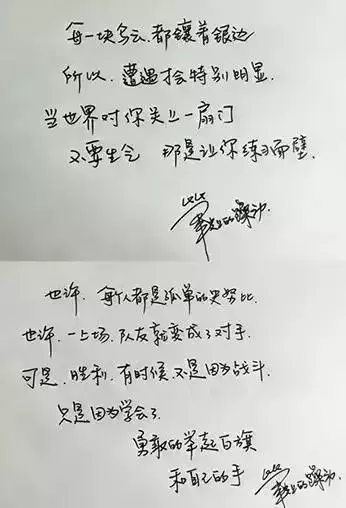 每一块乌云.都镶着银边
所以.遭遇才会特别明显.
当世界对你关上一扇门
不要生气 那是让你练习面壁.
上的躁动.
也许.每个人都是孤单的史努比.
也许.一上场.队友就变成了对手.
可是.胜利.有时候不是因为战斗.
只是因为学会了
勇敢的举起白旗
和自己的手 上的躁动.